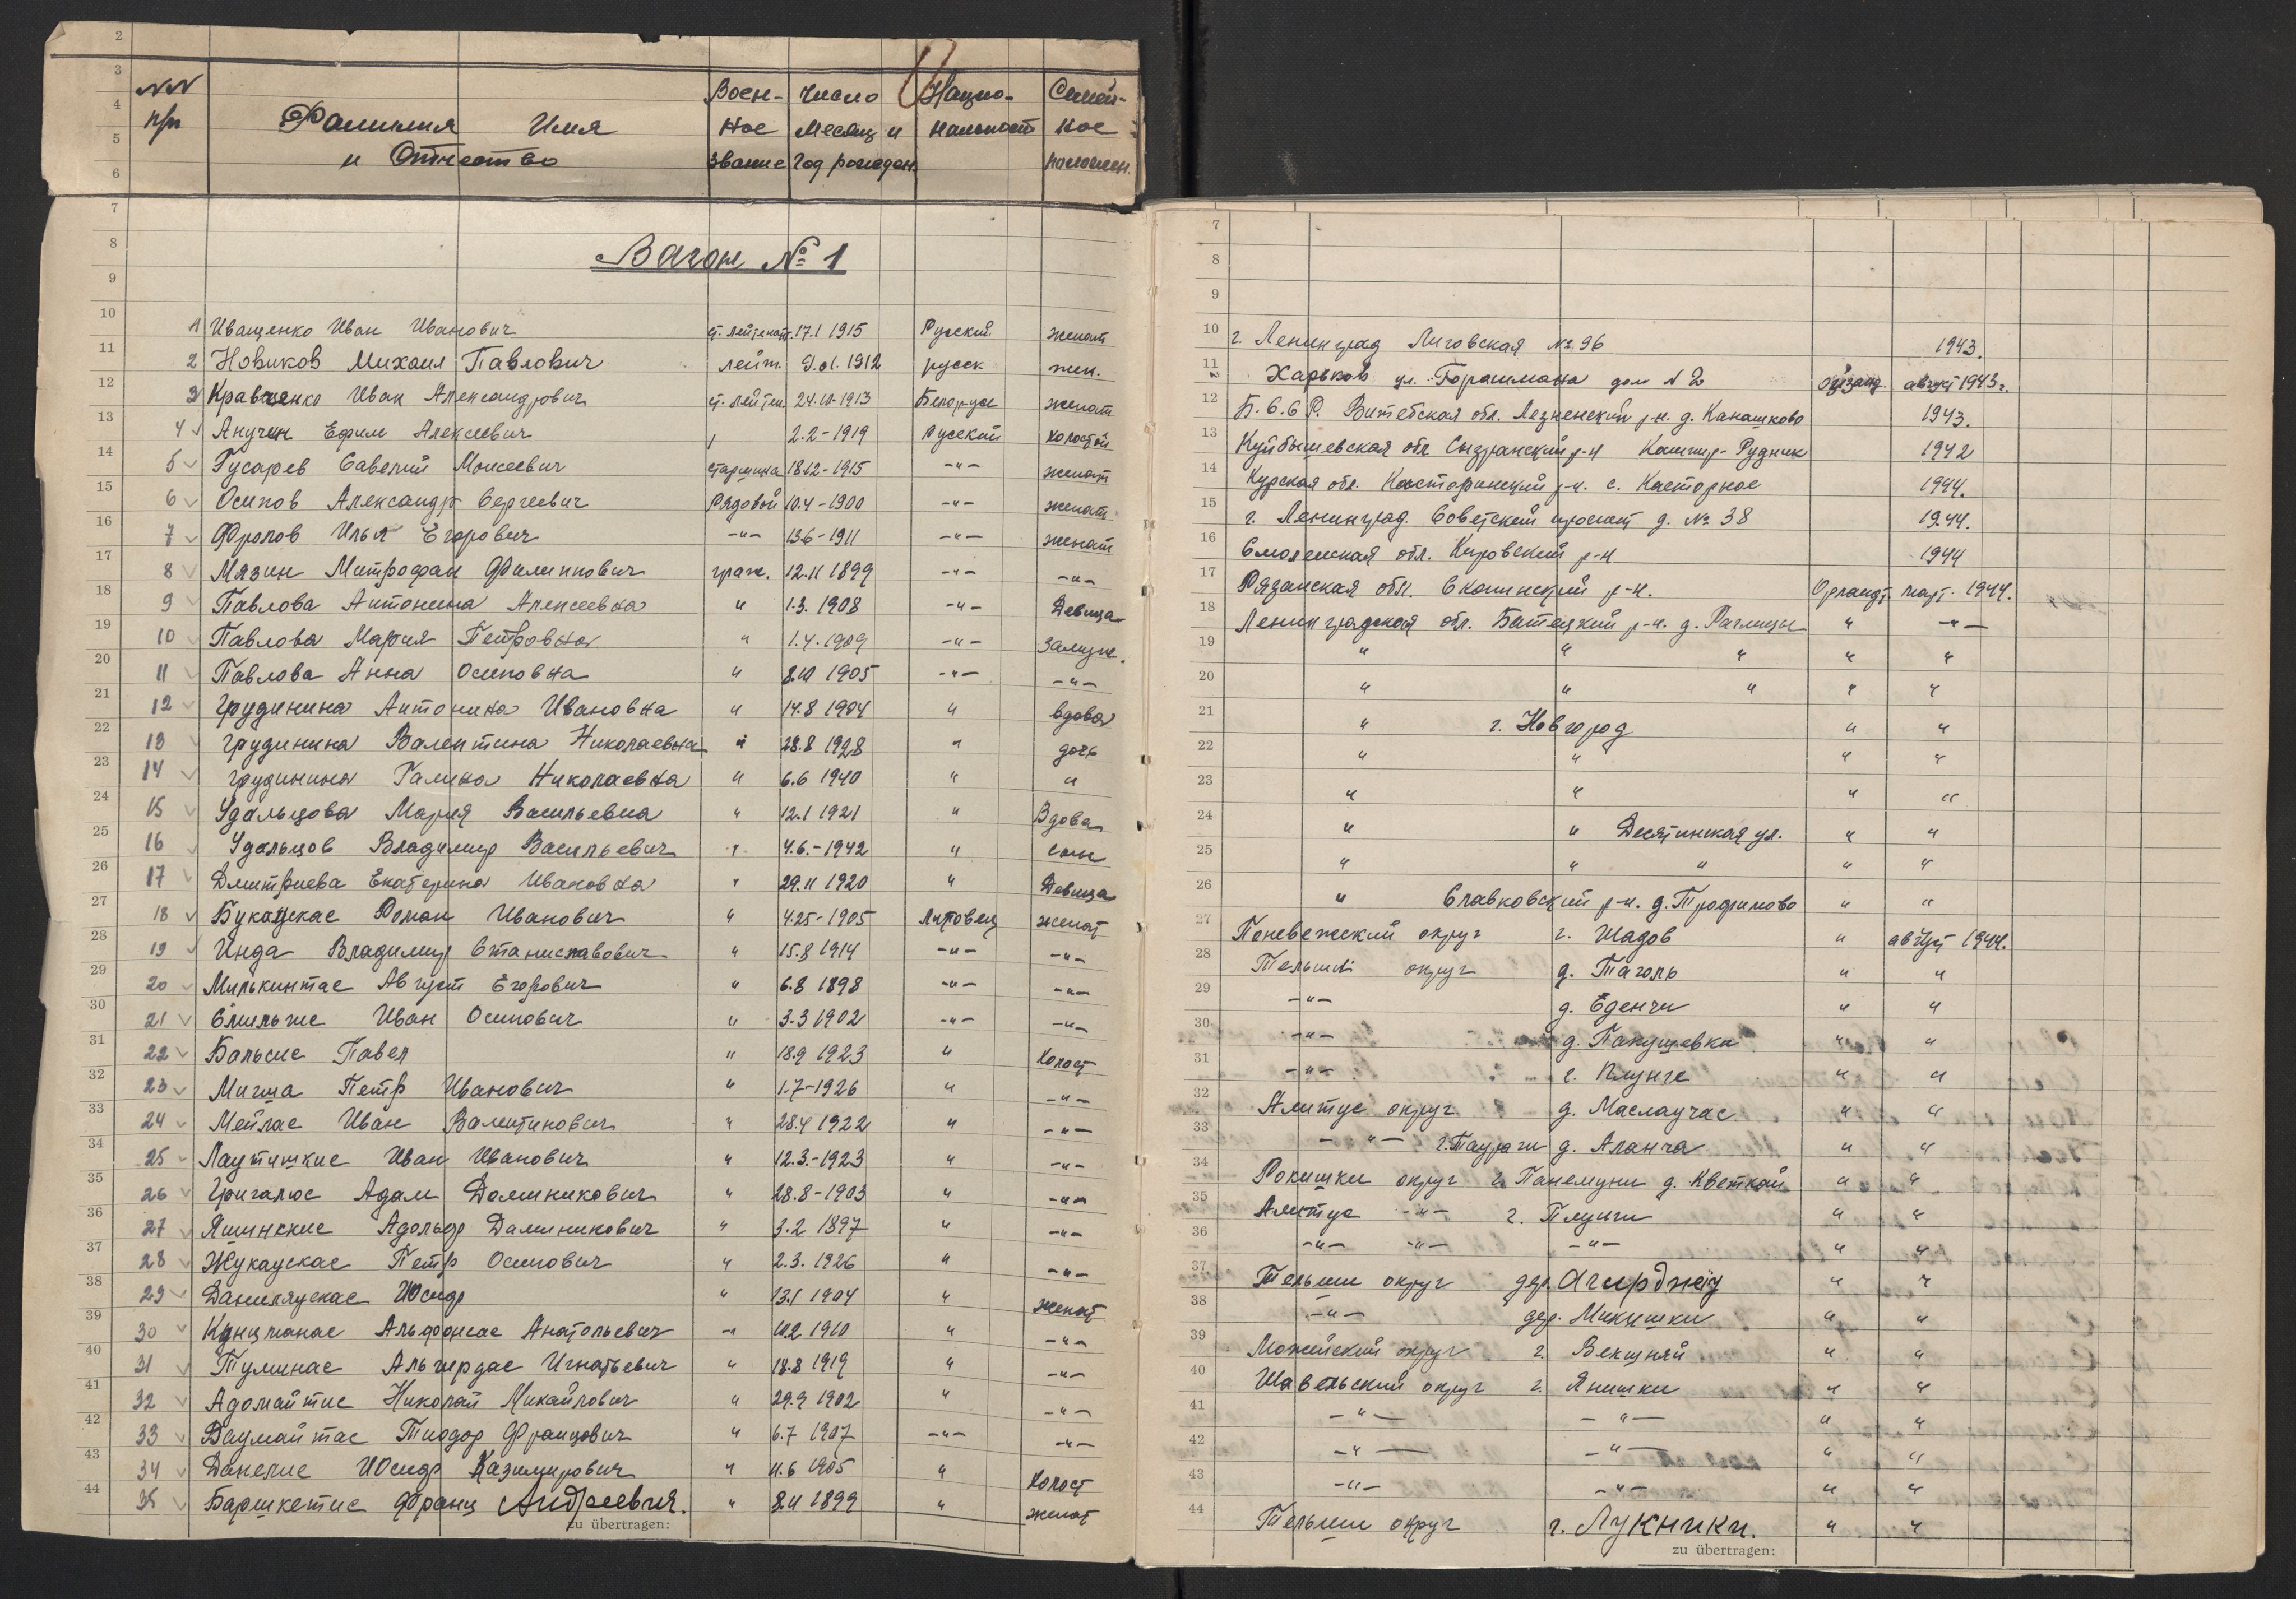 2
3
4
5
6
NN п/п Фамилия Имя и Отчество Воен-ное звание Число месяц и год рожден. Нацио-нальност Семей-ное положен.
7
8 Вагон № 1
9
10 1 Иващенко Иван Иванович ст. лейтенант 17.1 1915 Русский женат
11 2 Новиков Михаил Павлович лейт. 9.01.1912 русск жен.
12 3 Кравченко Иван Александрович ст. лейтен. 24.10-1913 Белорусс женат
13 4 Анучин Ефим Алексеевич 2.2-1919 Русский холостой
14 5 Гусарев Савелий Моисеевич старшина 18.12-1915 -"- женат
15 6 Осипов Александр Сергеевич Рядовой 10.4-1900 -"- женат
16 7 Фролов Илья Егорович -"- 13.6-1911 -"- женат
17 8 Мязин Митрофан Филиппович граж. 12.11 1899 -"- -"-
18 9 Павлова Антонина Алексеевна " 1.3.1908 -"- Девица
19 10 Павлова Мария Петровна " 1.4.1909 -"- Замуж.
20 11 Павлова Анна Осиповна " 8.10 1905 -"- -"-
21 12 Грудинина Антонина Ивановна " 14.8 1904 " вдова
22 13 Грудинина Валентина Николаевна " 28.8 1928 " дочь
23 14 Грудинина Галина Николаевна " 6.6 1940 " "
24 15 Удальцова Мария Васильевна " 12.1 1921 " Вдова
25 16 Удальцов Владимир Васильевич " 4.6.-1942 " сын
26 17 Дмитриева Екатерина Ивановна " 29.11 1920 " Девица
27 18 Букаускас Роман Иванович " 4.25-1905 Литовец женат
28 19 Инда Владимир Станиславович " 15.8 1914 -"- -"-
29 20 Милькинтас Август Егорович " 6.8 1898 -"- -"-
30 21 Смильгис Иван Осипович " 3.3 1902 -"- -"-
31 22 Бальсис Павел " 18.9 1923 " Холост
32 23 Мигша Петр Иванович " 1.7-1926 " -"-
33 24 Мейлас Иван Валентинович " 28.4 1922 " -"-
34 25 Лаутишкис Иван Иванович " 12.3.-1923 " -"-
35 26 Григалюс Адам Доминикович " 28.8-1903 " -"-
36 27 Яшинскис Адольф Даминикович " 3.2 1897 " -"-
37 28 Жукаускас Петр Осипович " 2.3.1926 " -"-
38 29 Даниляускас Юсиф " 13.1 1904 " женат
39 30 Кунцманас Альфонсас Анатольевич " 10.2 1910 " -"-
40 31 Туминас Альгирдас Игнатьевич " 18.8 1919 " -"-
41 32 Адомайтис Николай Михайлович " 29.9 1902 " -"-
42 33 Ваумайтас Тиодор Францович " 6.7 1907 -"- -"-
43 34 Данелис Юсиф Казимирович " 11.6 1905 " Холост
44 35 Баршкетис Франц Андреевич. " 8.11 1899 " женат
zu übertragen:
7
8
9
10 г. Ленинград Лиговская № 96 1943.
11 Харьков ул. Горашмана дом № 2 август 1943 г.
12 Б.С.С.Р. Витебская обл. Лезненский р-н. д. Канашково 1943.
13 Куйбышевская обл Сызранский р-н Кашпир-Рудник 1942
14 Курская обл. Касторинский р-н. с. Касторное 1944.
15 г. Ленинград. Советский проспект д. № 38 1944.
16 Смоленская обл. Кировский р-н 1944
17 Рязанская обл. Скопинский р-н. март. 1944.
18 Ленинградская обл. Батецкий р-н. д. Раглицы " -"-
19 " " " " "
20 " " " " "
21 " г. Новгород " "
22 " " " "
23 " " " "
24 " " Десятинская ул. " "
25 " " " " "
26 " Славковский р-н. д. Трофимово " "
27 Поневежский округ г. Шадов " август 1944.
28 Тельши округ д. Таголь " "
29 -"- д. Еденчи " "
30 -"- д. Пакущевка " "
31 -"- с. Плунге " "
32 Алитус округ д. Маслаучас " "
33 -"- г. Таураги д. Аланча " "
34 Рокишки округ г. Панемуни д. Кветкай " "
35 Алитус -"- г. Плунги " "
36 -"- -"- -"- " "
37 Тельши округ дер. Агирджяу " "
38 -"- дер. Микишки " "
39 Можейский округ г. Векшняй " "
40 Шавельский округ г. Янишки " "
41 -"- -"- " "
42 -"- -"- " "
43 -"- -"- " "
44 Тельши округ г. Лукники. " "
zu übertragen: